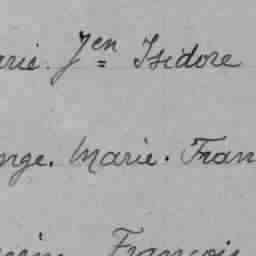 arie. Jen Isidore
ange. Marie. Fran
François